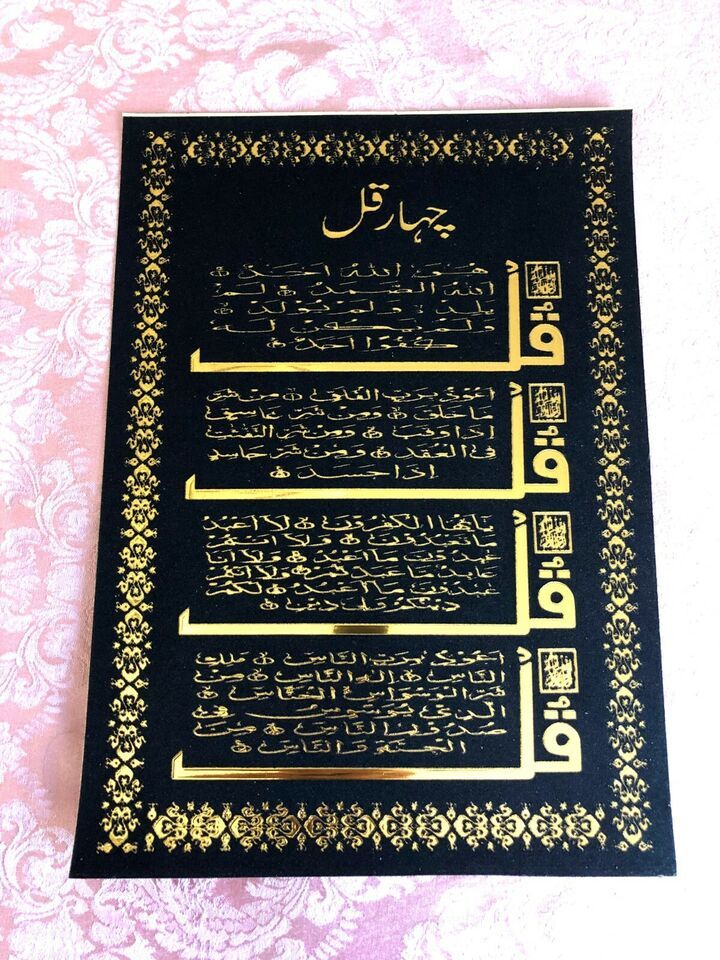 چہار قل
قل
هو الله احد
الله الصمد لم
يلد ولم يولد
ولم يكن له
كفوا احد
قل
اعوذ برب الفلق من شر
ما خلق ومن شر غاسق
اذا وقب ومن شر النفثت
في العقد ومن شر حاسد
اذا حسد
قل
يايها الكفرون لا اعبد
ما تعبدون ولا انتم
عبدون ما اعبد ولا انا
عابد ما عبدتم ولا انتم
عبدون ما اعبد لكم
دينكم ولي دين
قل
اعوذ برب الناس ملك
الناس اله الناس من
شر الوسواس الخناس
الذي يوسوس في
صدور الناس من
الجنة والناس